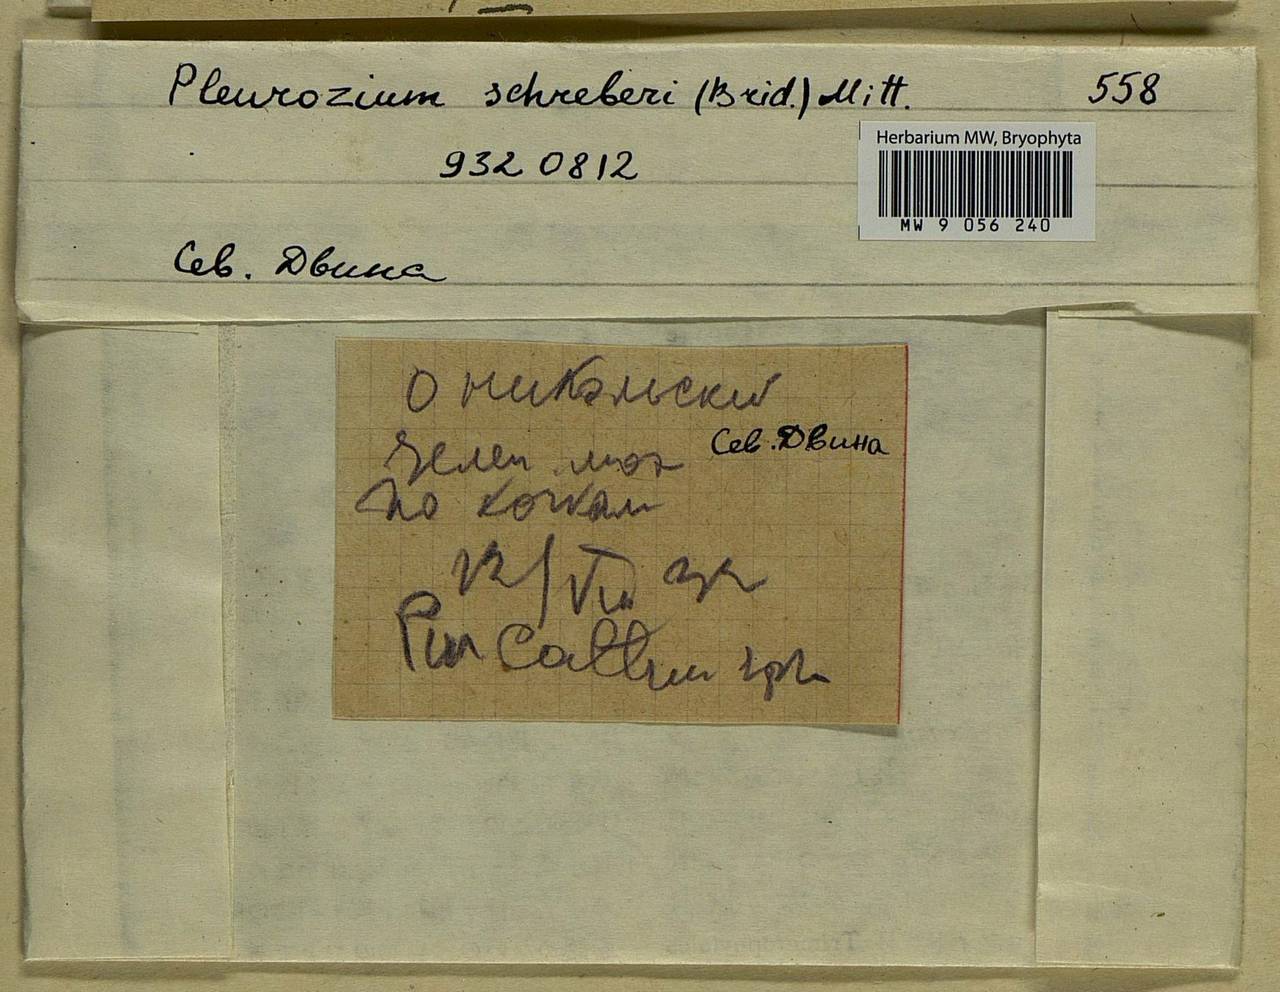 Pleurozium schreberi (Brid.) Mitt. 558
Herbarium MW, Bryophyta
MW 9 056 240
932 0812
Сев. Двина
О Никольский
Сев. Двина
Зелен. мох
по кочкам
12/VIII
Pin Callun sph